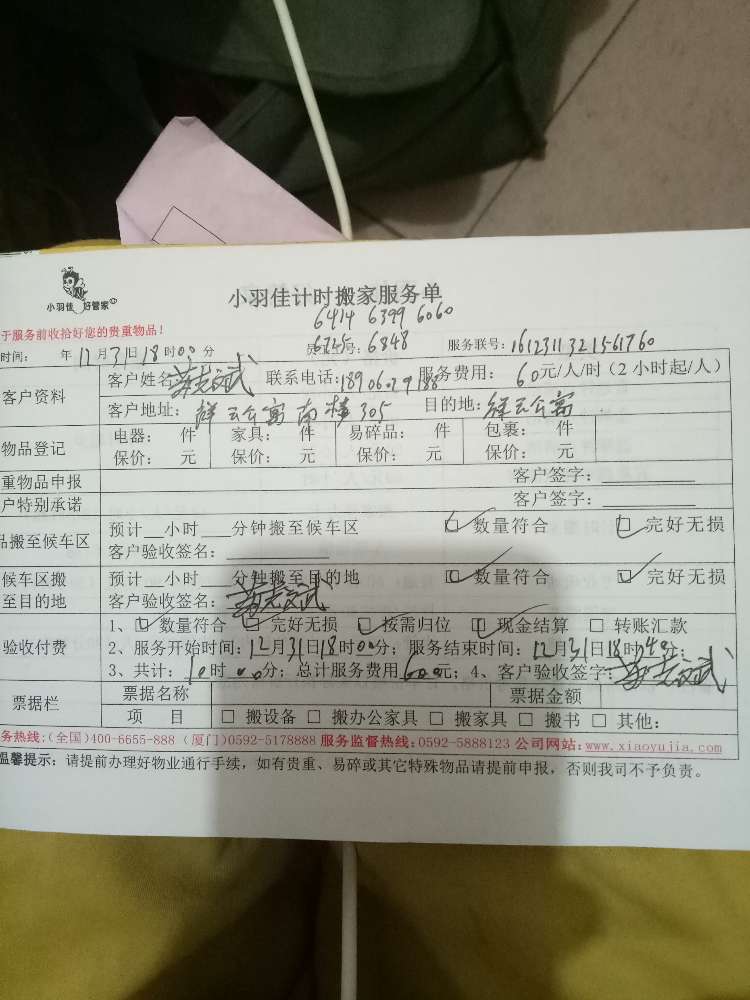 小羽佳 好管家
小羽佳计时搬家服务单
于服务前收拾好您的贵重物品！
6414 6399 6060
时间： 年12月31日18时00分 员工编号：6725 6848 服务联号：1612311321561760
客户资料
客户姓名 联系电话：18906029188 服务费用：60元/人/时（2小时起/人）
客户地址：祥云公寓南楼305 目的地：祥云公寓
物品登记
电器： 件 家具： 件 易碎品： 件 包裹： 件
保价： 元 保价： 元 保价： 元 保价： 元
重物品申报 客户签字：
户特别承诺 客户签字：
品搬至候车区
预计__小时___分钟搬至候车区 数量符合 完好无损
客户验收签名：
候车区搬至目的地
预计__小时___分钟搬至目的地 数量符合 完好无损
客户验收签名：
验收付费
1、数量符合 完好无损 按需归位 现金结算 转账汇款
2、服务开始时间：12月31日18时00分；服务结束时间：12月31日18时40分；
3、共计：10时00分；总计服务费用600元；4、客户验收签字：
票据栏
票据名称 票据金额
项 目 搬设备 搬办公家具 搬家具 搬书 其他：
务热线：(全国)400-6655-888 (厦门)0592-5178888 服务监督热线：0592-5888123 公司网站：www.xiaoyujia.com
温馨提示：请提前办理好物业通行手续，如有贵重、易碎或其它特殊物品请提前申报，否则我司不予负责。